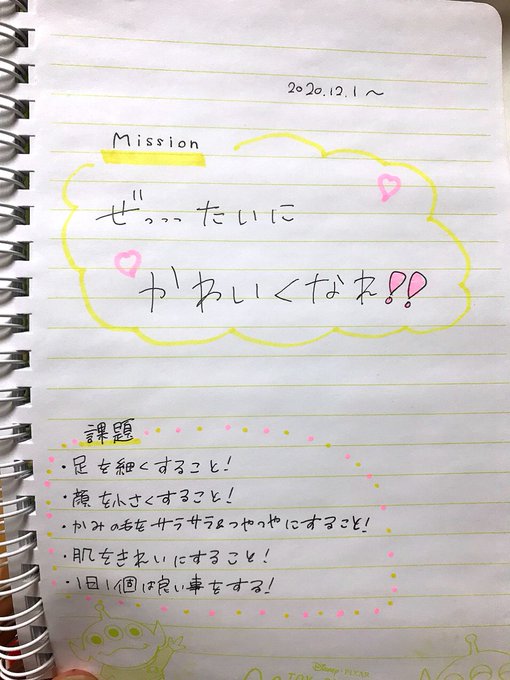 2020.12.1〜
Mission
ぜっっったいに
かわいくなれ!!
課題
・足を細くすること!
・顔を小さくすること!
・かみの毛をサラサラ&つやつやにすること!
・肌をきれいにすること!
・1日1個は良い事をする!
Disney・PIXAR